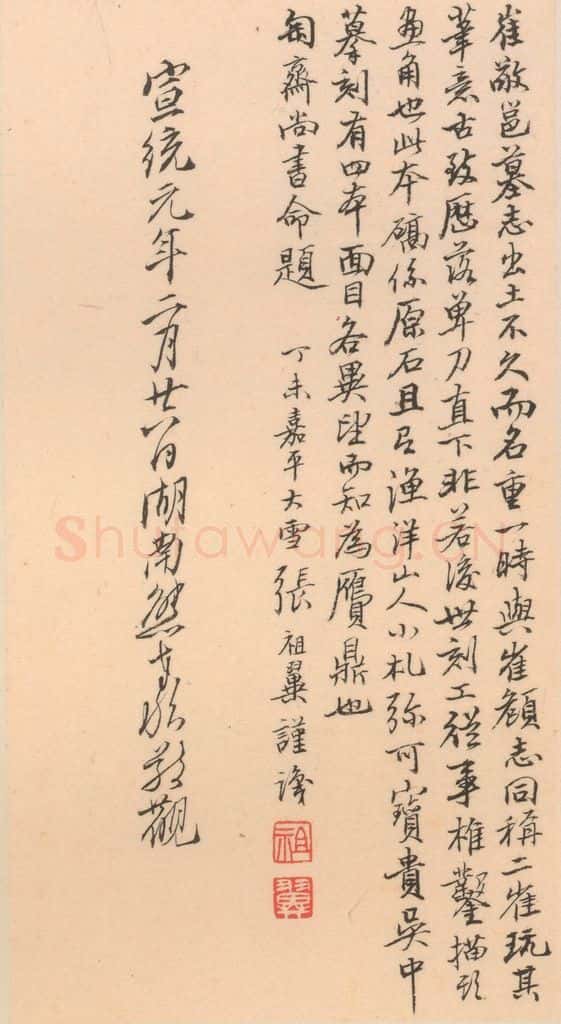 崔敬邕墓志出土不久而名重一時與崔頠志同稱二崔玩其
筆意古致歷落單刀直下非若後世刻工從事椎鑿描頭
畫角也此本礭係原石且有漁洋山人小札弥可寶貴吳中
摹刻有四本面目各異望而知為贗鼎也
匋齋尚書命題
丁未嘉平大雪張祖翼謹識
祖翼
宣統元年二月廿八日湖南熊希齡敬觀
Shufawang.CN